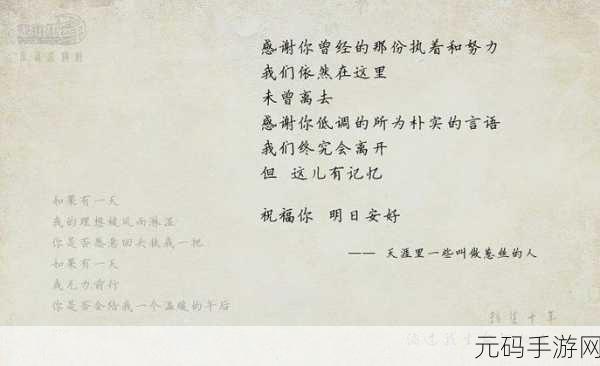 感谢你曾经的那份执着和努力
我们依然在这里
未曾离去
感谢你低调的所为朴实的言语
我们终究会离开
但 这儿有记忆
祝福你 明日安好
—— 天涯里一些叫做葱丝的人
如果有一天
我的理想被风雨淋湿
你是否愿意回头扶我一把
如果有一天
我无力前行
你是否会给我一个温暖的午后
元码手游网